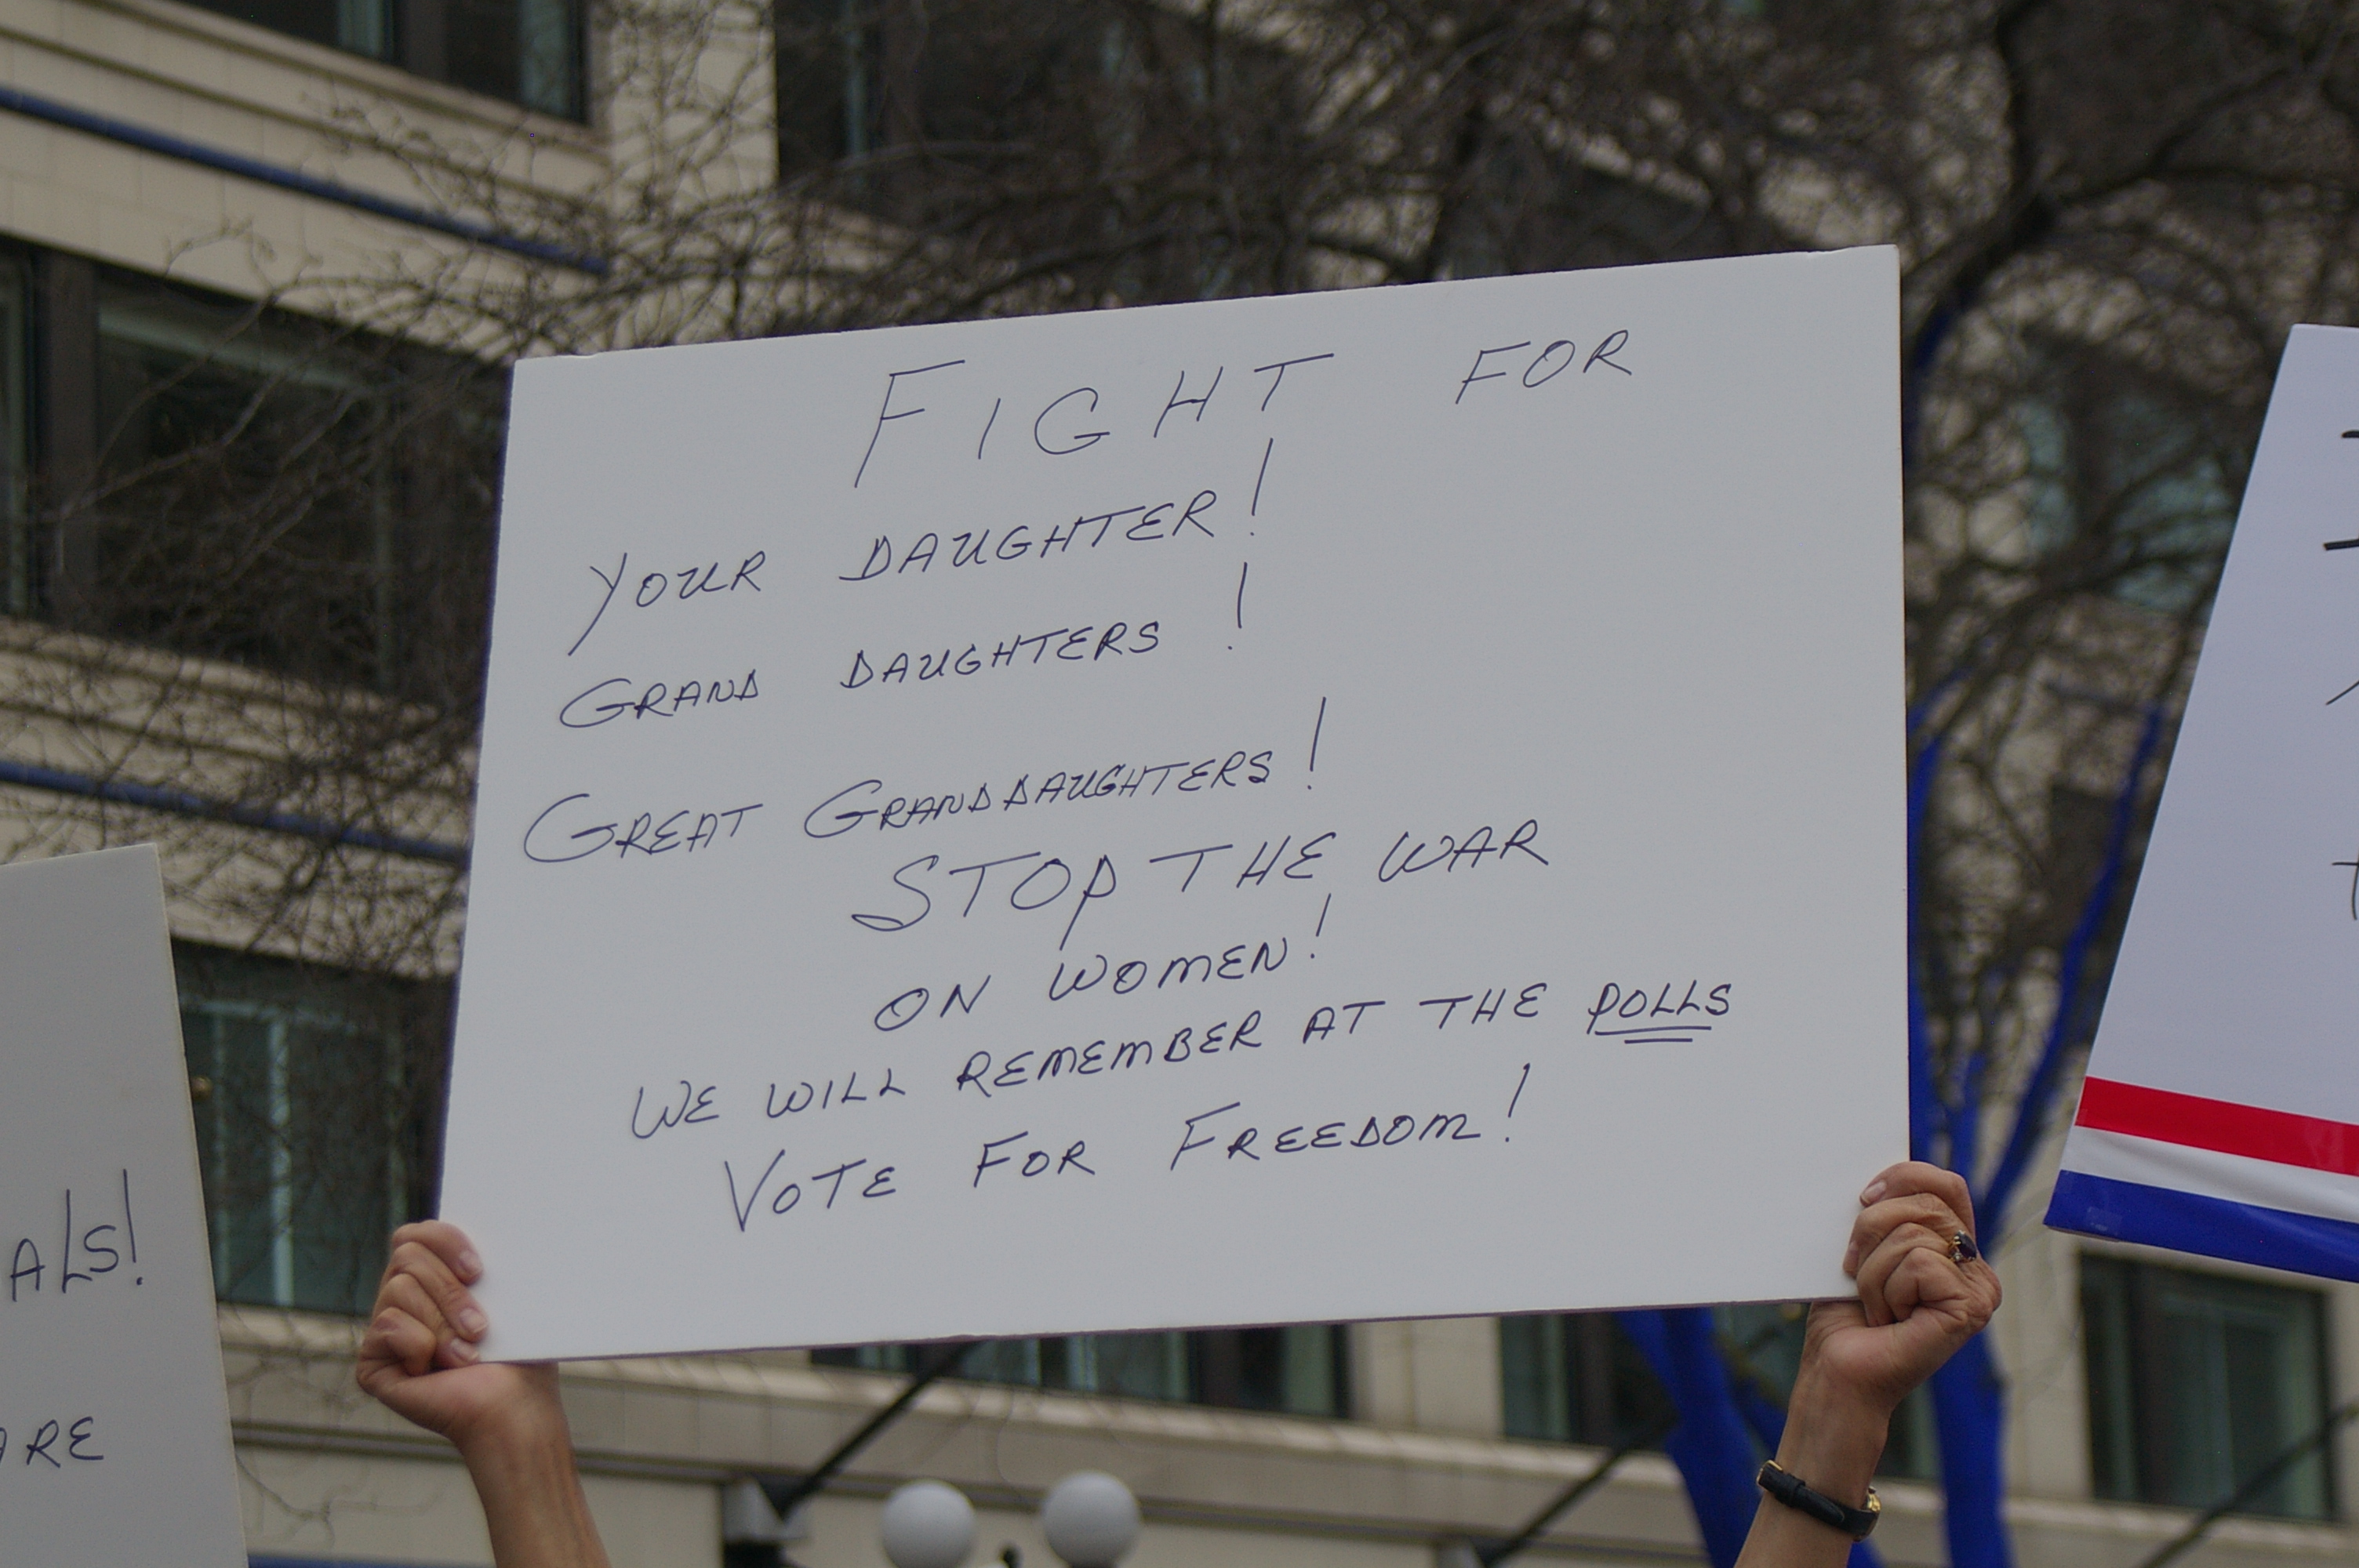 FIGHT FOR
YOUR DAUGHTER!
GRAND DAUGHTERS!
GREAT GRANDDAUGHTERS!
STOP THE WAR
ON WOMEN!
WE WILL REMEMBER AT THE POLLS
VOTE FOR FREEDOM!
ALS!
RE